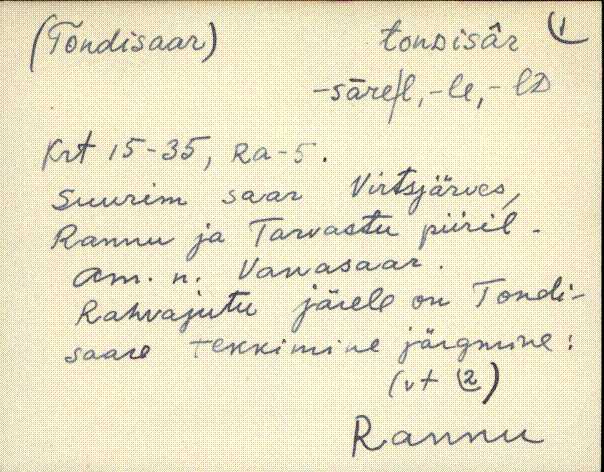 (Tondisaar) tondisâr (1
-säre/l, -le, - ld
Krt 15-35, Ra-5.
Suurim saar Virtsjärves,
Rannu ja Tarvastu piiril.
Am. n. Vanasaar.
Rahvajutu järele on Tondi-
saare tekkimine järgmine:
(vt (2)
Rannu